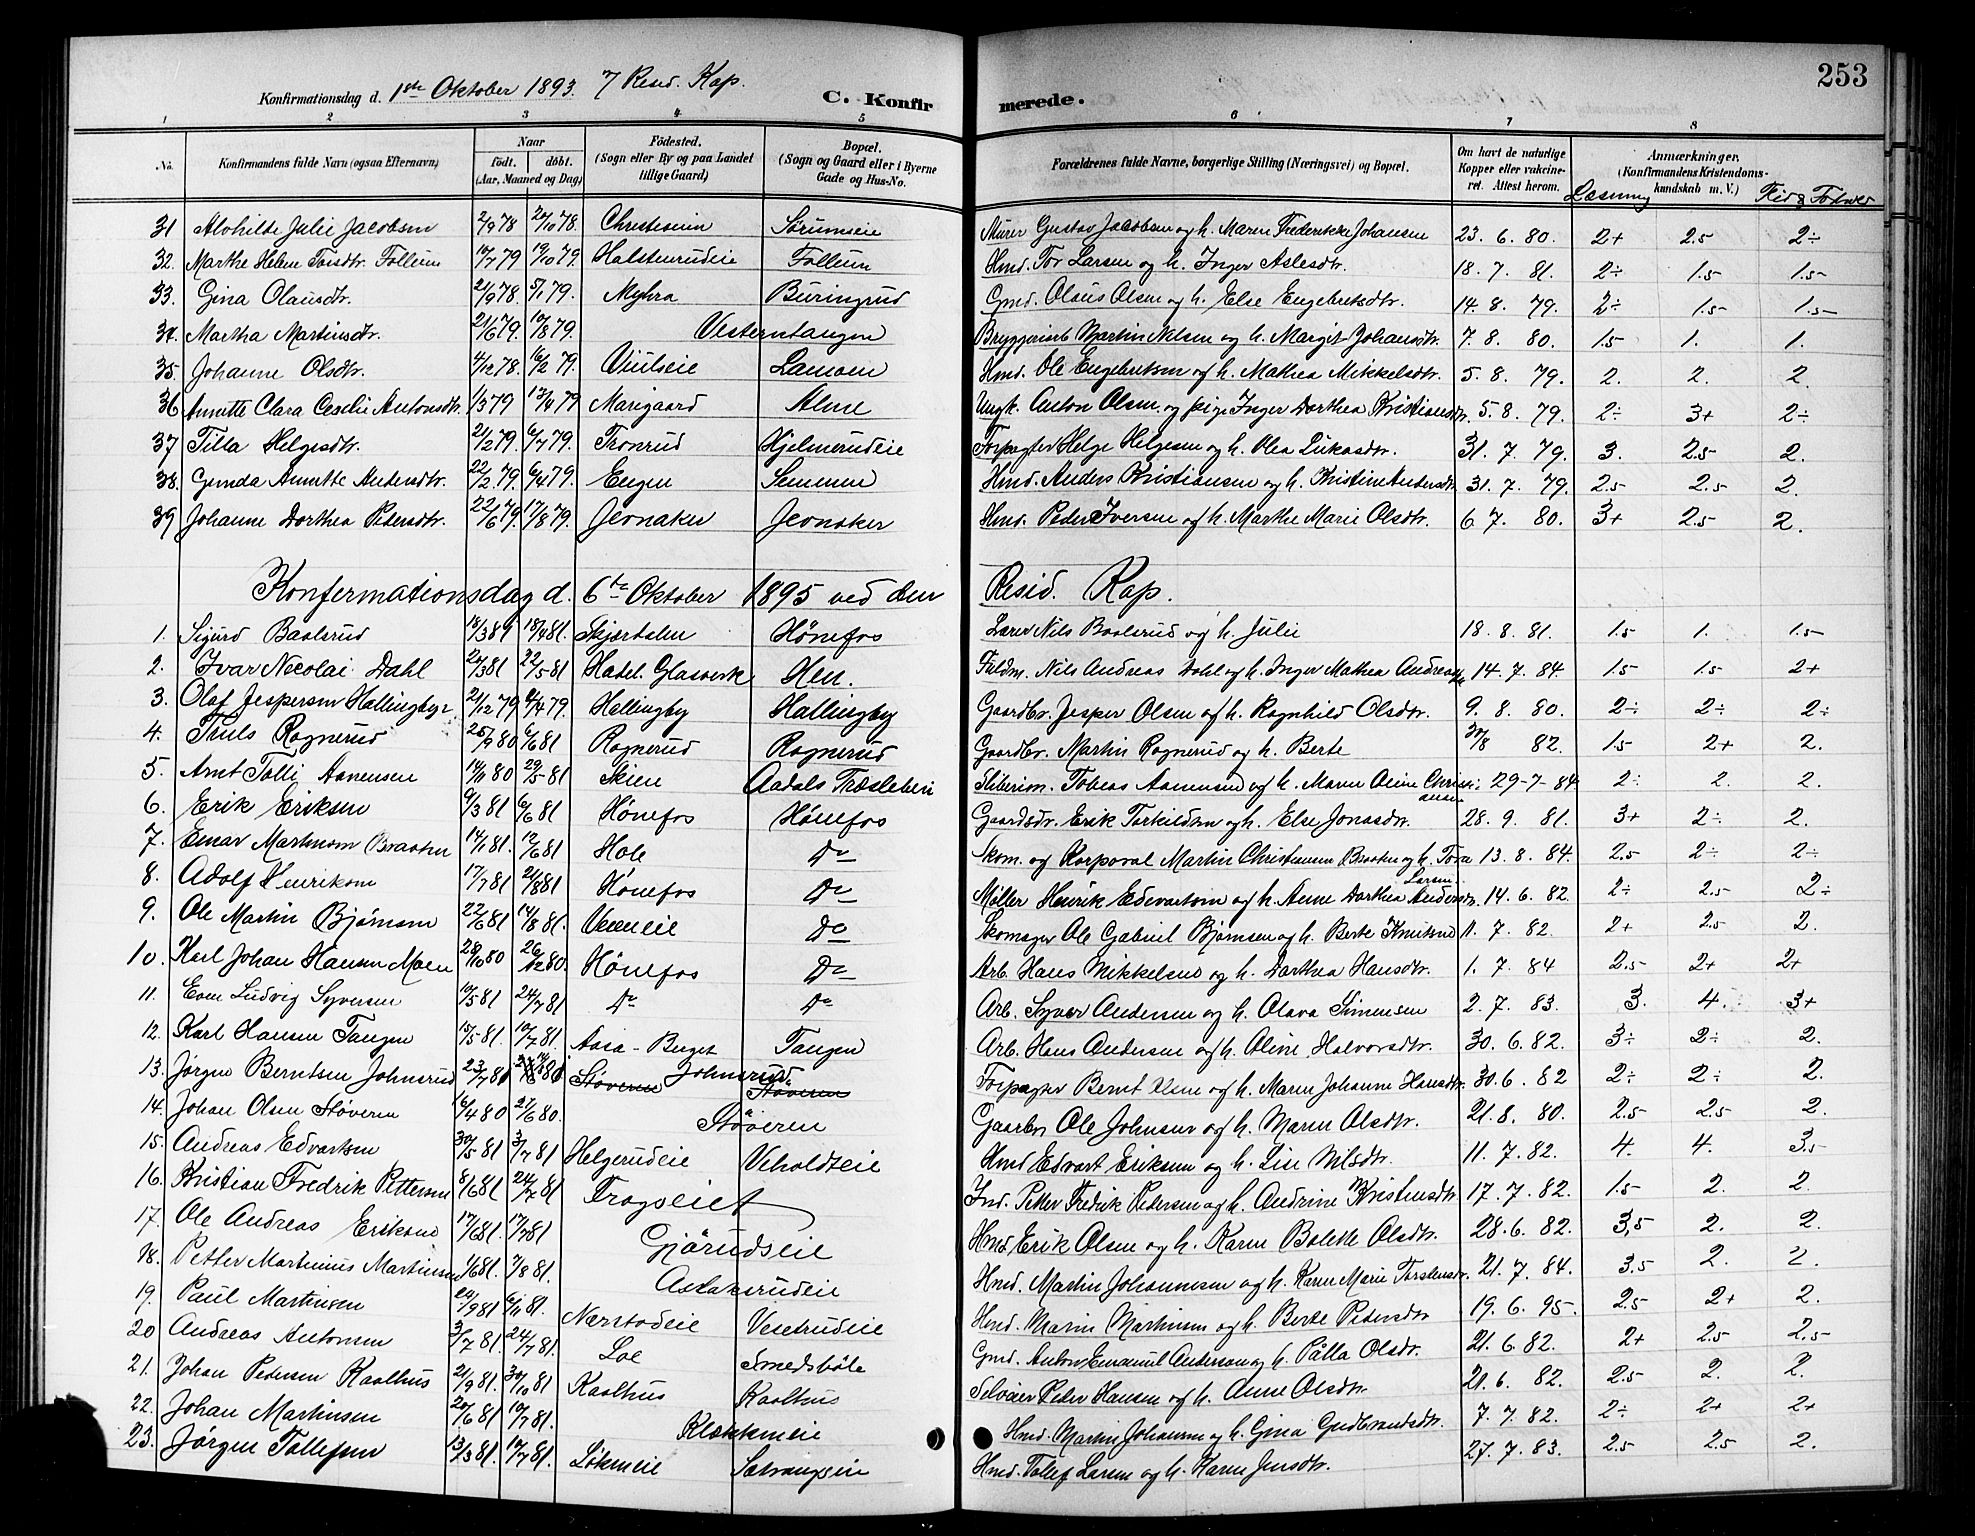 253
Konfirmationsdag d. 1ste Oktober 1893. 7 Resid. Kap. C. Konfirmerede.
1 2 3 4 5 6 7 8
No. Konfirmandens fulde Navn (ogsaa Efternavn) Naar født. døbt. (Aar, Maaned og Dag) Födested. (Sogn eller By og paa Landet tillige Gaard) Bopæl. (Sogn og Gaard eller i Byerne Gade og Hus-No. Forældrenes fulde Navne, borgerlige Stilling (Næringsvei) og Bopæl. Om havt de naturlige Kopper eller vakcineret. Attest herom. Anmærkninger. (Konfirmandens Kristendomskundskab m. V.) Læsning Flid &
31 Alvhilde Julie Jacobsen 2/9 78 20/10 78. Sørumseie Murer Gustav Jacobsen og h. Maren Frederikke Johansen 23. 6. 80. 2+ 2.5 2÷
32. Marthe Helene Torsdtr. Follum 10/7 79 19/10 79. Halstenrudeie Follum Hmd. Tor Larsen og h. Inger Aslesdtr. 18. 7. 81. 2÷ 1.5 1.5
33. Gina Olausdtr. 21/9 78. 5/1 79. Myhra Buringrud Gmd. Olaus Olsen og h. Else Engebretsdtr. 14. 8. 79. 2÷ 1.5 1.5
34. Martha Martinsdtr. 21/6 79. 10/8 79. Vesterntangen Martin Nilsen og h. Margit Johansdtr. 7. 8. 80. 1.5 1. 1.
35. Johanne Olsdtr. 4/12 78. 16/2 79. Viulseie Lamoen Hmd. Ole Engebretsen og h. Mathea Mikkelsdtr. 5. 8. 79. 2. 2. 2.
36 Annette Clara Cecilie Antonsdtr. 1/3 79 13/4 79 Marigaard Alme Ungk. Anton Olsen og pige Inger Dorthea Kristiansdtr. 5. 8. 79. 2÷ 3+ 2÷
37 Tilla Helgesdtr. 21/2 79. 6/7 79. Tronrud Hjelmerudeie Forpagter Helge Helgesen og h. Olea Lukasdtr. 31. 7. 79. 3. 2.5 2.
38. Gunda Annette Andersdtr. 22/2 79. 6/4 79. Engen Semmen Hmd. Anders Kristiansen og h. Kristine Andersdtr. 31. 7. 79. 2.5 2.5 2.
39 Johanne Dorthea Pedersdtr. 22/6 79. 17/8 79. Jevnaker Jevnaker Hmd. Peder Iversen og h. Marthe Marie Olsdtr. 6. 7. 80. 3+ 2.5 2.
Konfermationsdag d. 6te Oktober 1895 ved den Resid. Kap.
1. Sigurd Baalsrud 18/3 81 18/4 81. Skjærdalen Hönefos Lærer Nils Baalsrud og h. Julie 18. 8. 81. 1.5 1. 1.5
2. Ivar Nicolai Dahl 2/3 81 22/5 81 Hadel. Glasverk Hen. Fuldm. Nils Andreas Dahl og h. Inger Mathea 14. 7. 84. 1.5 1.5 2+
3. Olaf Jespersen Hallingby 21/12 79 4/4 79. Hallingby Hallingby Gaardbr. Jesper Olsen og h. Ragnhild Olsdtr. 9. 8. 80. 2÷ 2÷ 2÷
4. Truls Rognerud 25/9 80 6/6 81 Rognerud Rognerud Gaardbr. Martin Rognerud og h. Berte 30/8 82. 1.5 2+ 2.
5. Arnt Tolli Aanensen 14/11 80 29/5 81 Skien Aadals Træsleberi Sliberim. Tobias Aanensen og h. Maren Oline Christiansen 29-7-84 2÷ 2. 2.
6. Erik Eriksen 9/3 81 6/6 81 Hönefos Hönefos Gaardsdr. Erik Torkildsen og h. Else Jonasdtr. 28. 9. 81. 3+ 2÷ 2.
7. Einar Martinsen Braaten 14/1 81. 12/6 81 Hole Do Skom. og Korporal Martin Christiansen Braaten og h. Tora Larsen 13. 8. 84. 2.5 2÷ 2÷
8. Adolf Henriksen 17/7 81 21/8 81 Hönefos Do Møller Henrik Edvartsen og h. Anne Dorthea Andersdtr. 14. 6. 82. 2÷ 2.5 2÷
9. Ole Martin Bjørnsen 22/6 81 14/8 81. Veeneie Do Skomager Ole Gabriel Bjørnsen og h. Berte Knutsen 11. 7. 82. 2+ 2.5 2.
10. Karl Johan Hansen Moen 28/10 80 26/12 80. Hönefos Do Arb. Hans Mikkelsen og h. Dorthea Hansdtr. 1. 7. 84 2.5 2+ 2+
11. Even Ludvig Syversen 10/5 81 24/7 81 Do Do Arb. Syver Andersen og h. Olava Simensen 2. 7. 83. 3. 4. 3+
12. Karl Hansen Tangen 15/5 81. 10/7 81. Aasa-Berget Tangen Arb. Hans Andersen og h. Oline Halvorsdtr. 30. 6. 82. 3÷ 2÷ 2.
13. Jørgen Berntsen Johnsrud 23/7 81 Støveren Johnsrud Støveren Forpagter Bernt Olsen og h. Maren Johanne Hansdtr. 30. 6. 82 2÷ 2÷ 2.
14. Johan Olsen Støveren 16/4 80 27/6 80. Støveren Gaarbr Ole Johnsen og h. Maren Olsdtr. 21. 8. 80. 2.5 2.5 2.
15. Andreas Edvartsen 30/5 81 3/7 81 Helgerudeie Veholdteie Hmd Edvart Eriksen og h. Lise Nilsdtr. 11. 7. 82. 4. 4. 3.5
16. Kristian Fredrik Pettersen 8/6 81 24/7 81 Trogseiet Ind. Petter Fredrik Pedersen og h. Andrine Kristensdtr. 17. 7. 82. 1.5 2. 2.
17. Ole Andreas Eriksen 17/6 81. 17/7 81 Gjörudseie Hmd. Erik Olsen og h. Karen Bolette Olsdtr. 28. 6. 82. 3,5 2. 2.
18. Petter Martinius Martinsen 1/6 81. 7/8 81. Aslaksrudeie Hmd. Martin Johannesen og h. Karen Marie Torstensdtr. 21. 7. 84. 3.5 2. 2.
19. Paul Martinsen 24/9 81 6/11 81. Nærstadeie Vesetrudeie Hmd. Martin Martinsen og h. Berte Pedersdtr 19. 6. 95. 2.5 2+ 2.
20 Andreas Antonsen 3/7 81. 24/7 81. Loe Smedsböle Gmd. Anton Emanuel Anderson og h. Pålla Olsdtr. 21. 6. 82. 2+ 2.5 2.5
21. Johan Pedersen Kaalhus 21/9 81. 30/10 81 Kaalhus Kaalhus Selveier Peder Hansen og h. Anne Olsdtr. 21. 6. 82. 2.5 2. 2.
22. Johan Martinsen 20/6 81 10/7 81. Klækkeneie Hmd. Martin Johansen og h. Gina Gudbrandsdtr. 7. 7. 82. 2÷ 2+ 2+
23. Jørgen Tollefsen 13/3 81. 10/7 81. Lökeneie Hmd. Tollef Larsen og h. Karen Jensdtr. 27. 7. 83. 2.5 2.5 2.